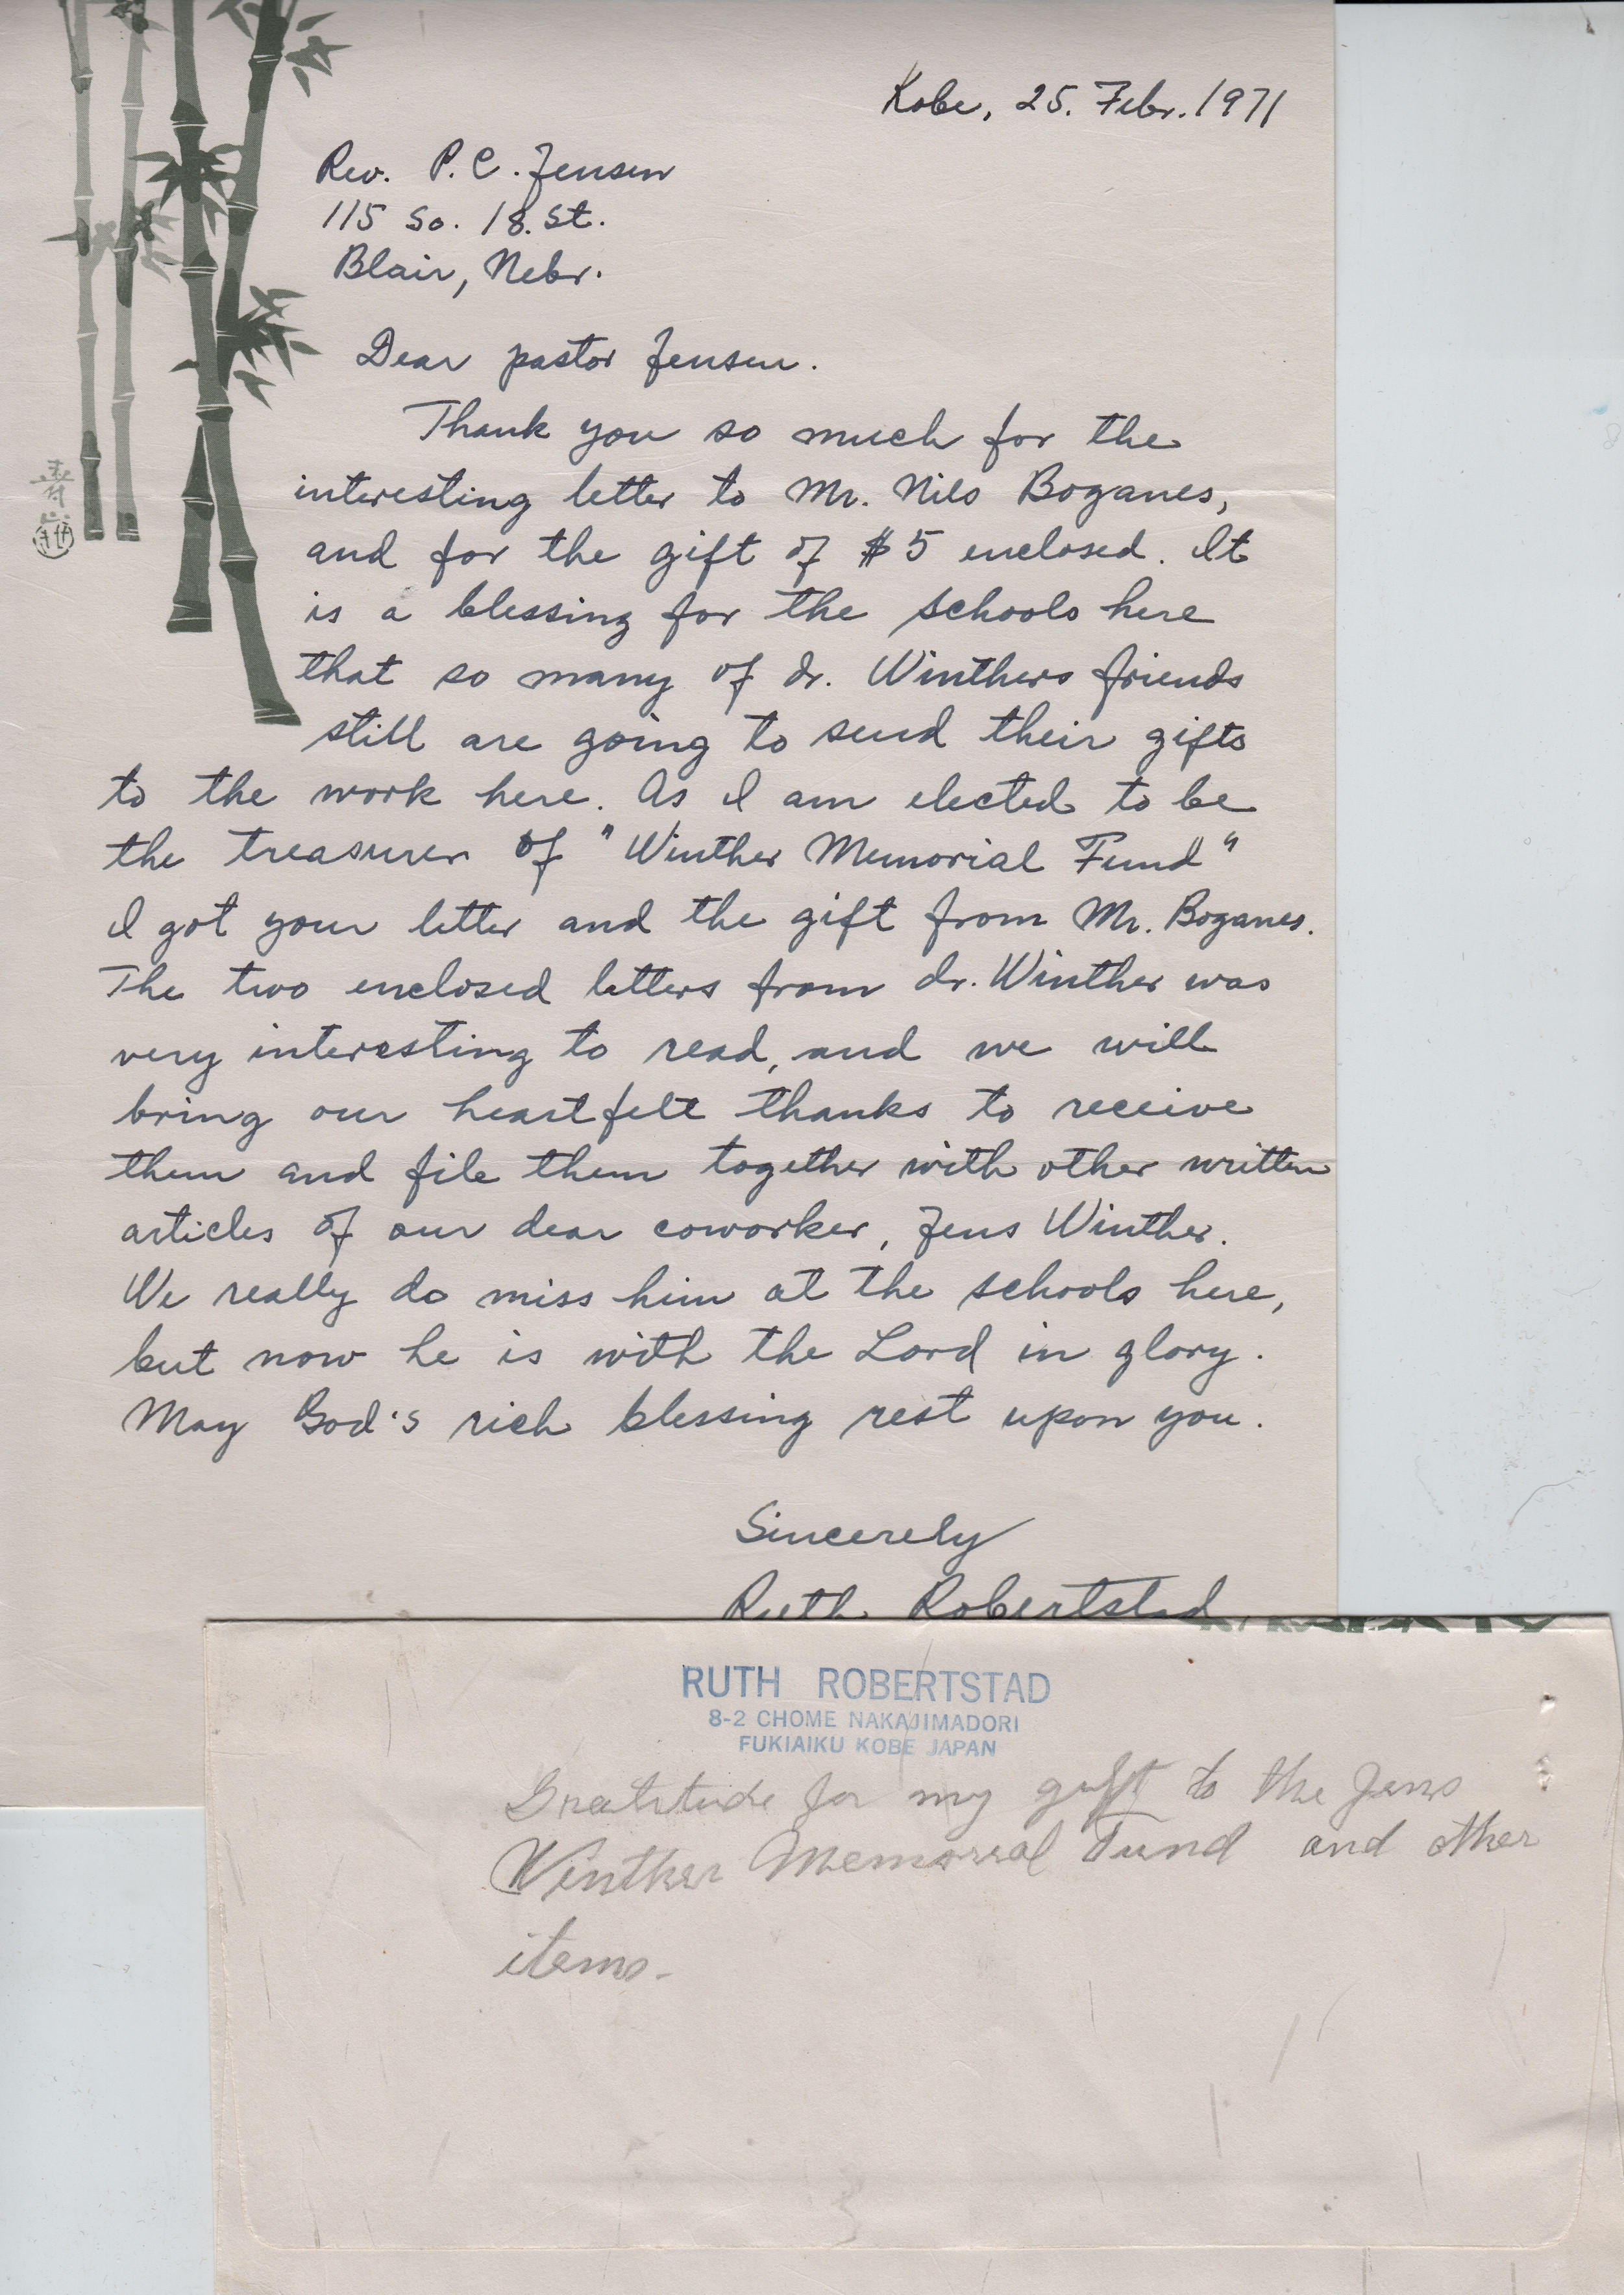 Kobe, 25. Febr. 1971
Rev. P. C. Jensen
115 So. 18. St.
Blair, Nebr.
Dear pastor Jensen.
Thank you so much for the
interesting letter to Mr. Nils Boganes,
and for the gift of $5 enclosed. It
is a blessing for the schools here
that so many of dr. Winthers friends
still are going to send their gifts
to the work here. As I am elected to be
the treasurer of "Winther Memorial Fund"
I got your letter and the gift from Mr. Boganes.
The two enclosed letters from dr. Winther was
very interesting to read, and we will
bring our heartfelt thanks to receive
them and file them together with other written
articles of our dear coworker, Jens Winther.
We really do miss him at the schools here,
but now he is with the Lord in glory.
May God's rich blessing rest upon you.
Sincerely
Ruth Robertstad
RUTH ROBERTSTAD
8-2 CHOME NAKAJIMADORI
FUKIAIKU KOBE JAPAN
Gratitude for my gift to the Jens
Winther Memorial Fund and other
items.